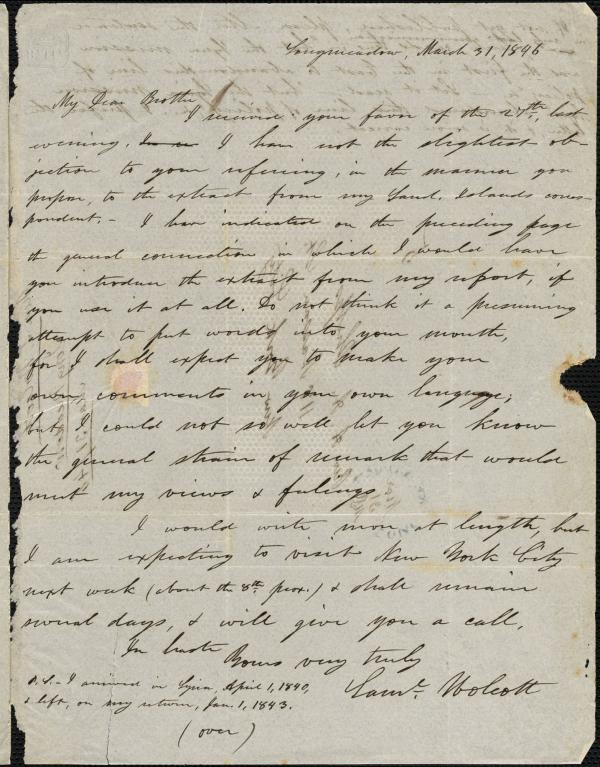 Longmeadow, March 31, 1846
My Dear Brother
I received your favor of the 27th, last
evening. I have not the slightest ob-
jection to your referring, in the manner you
propose, to the extract from my Sand. Islands corres-
pondent. – I have indicated on the preceding page
the general connection in which I would have
you introduce the extract from my report, if
you use it at all. Do not think it a presuming
attempt to put words into your mouth,
for I shall expect you to make your
own comments in your own language;
but I could not so well let you know
the general strain of remark that would
meet my views & feelings.
I would write more at length, but
I am expecting to visit New York City
next week (about the 8th. prox.) & shall remain
several days, & will give you a call.
In haste
Yours very truly
Saml. Wolcott
P.S. – I arrived in Syria, April 1, 1840,
& left, on my return, Jan. 1, 1843.
(over)